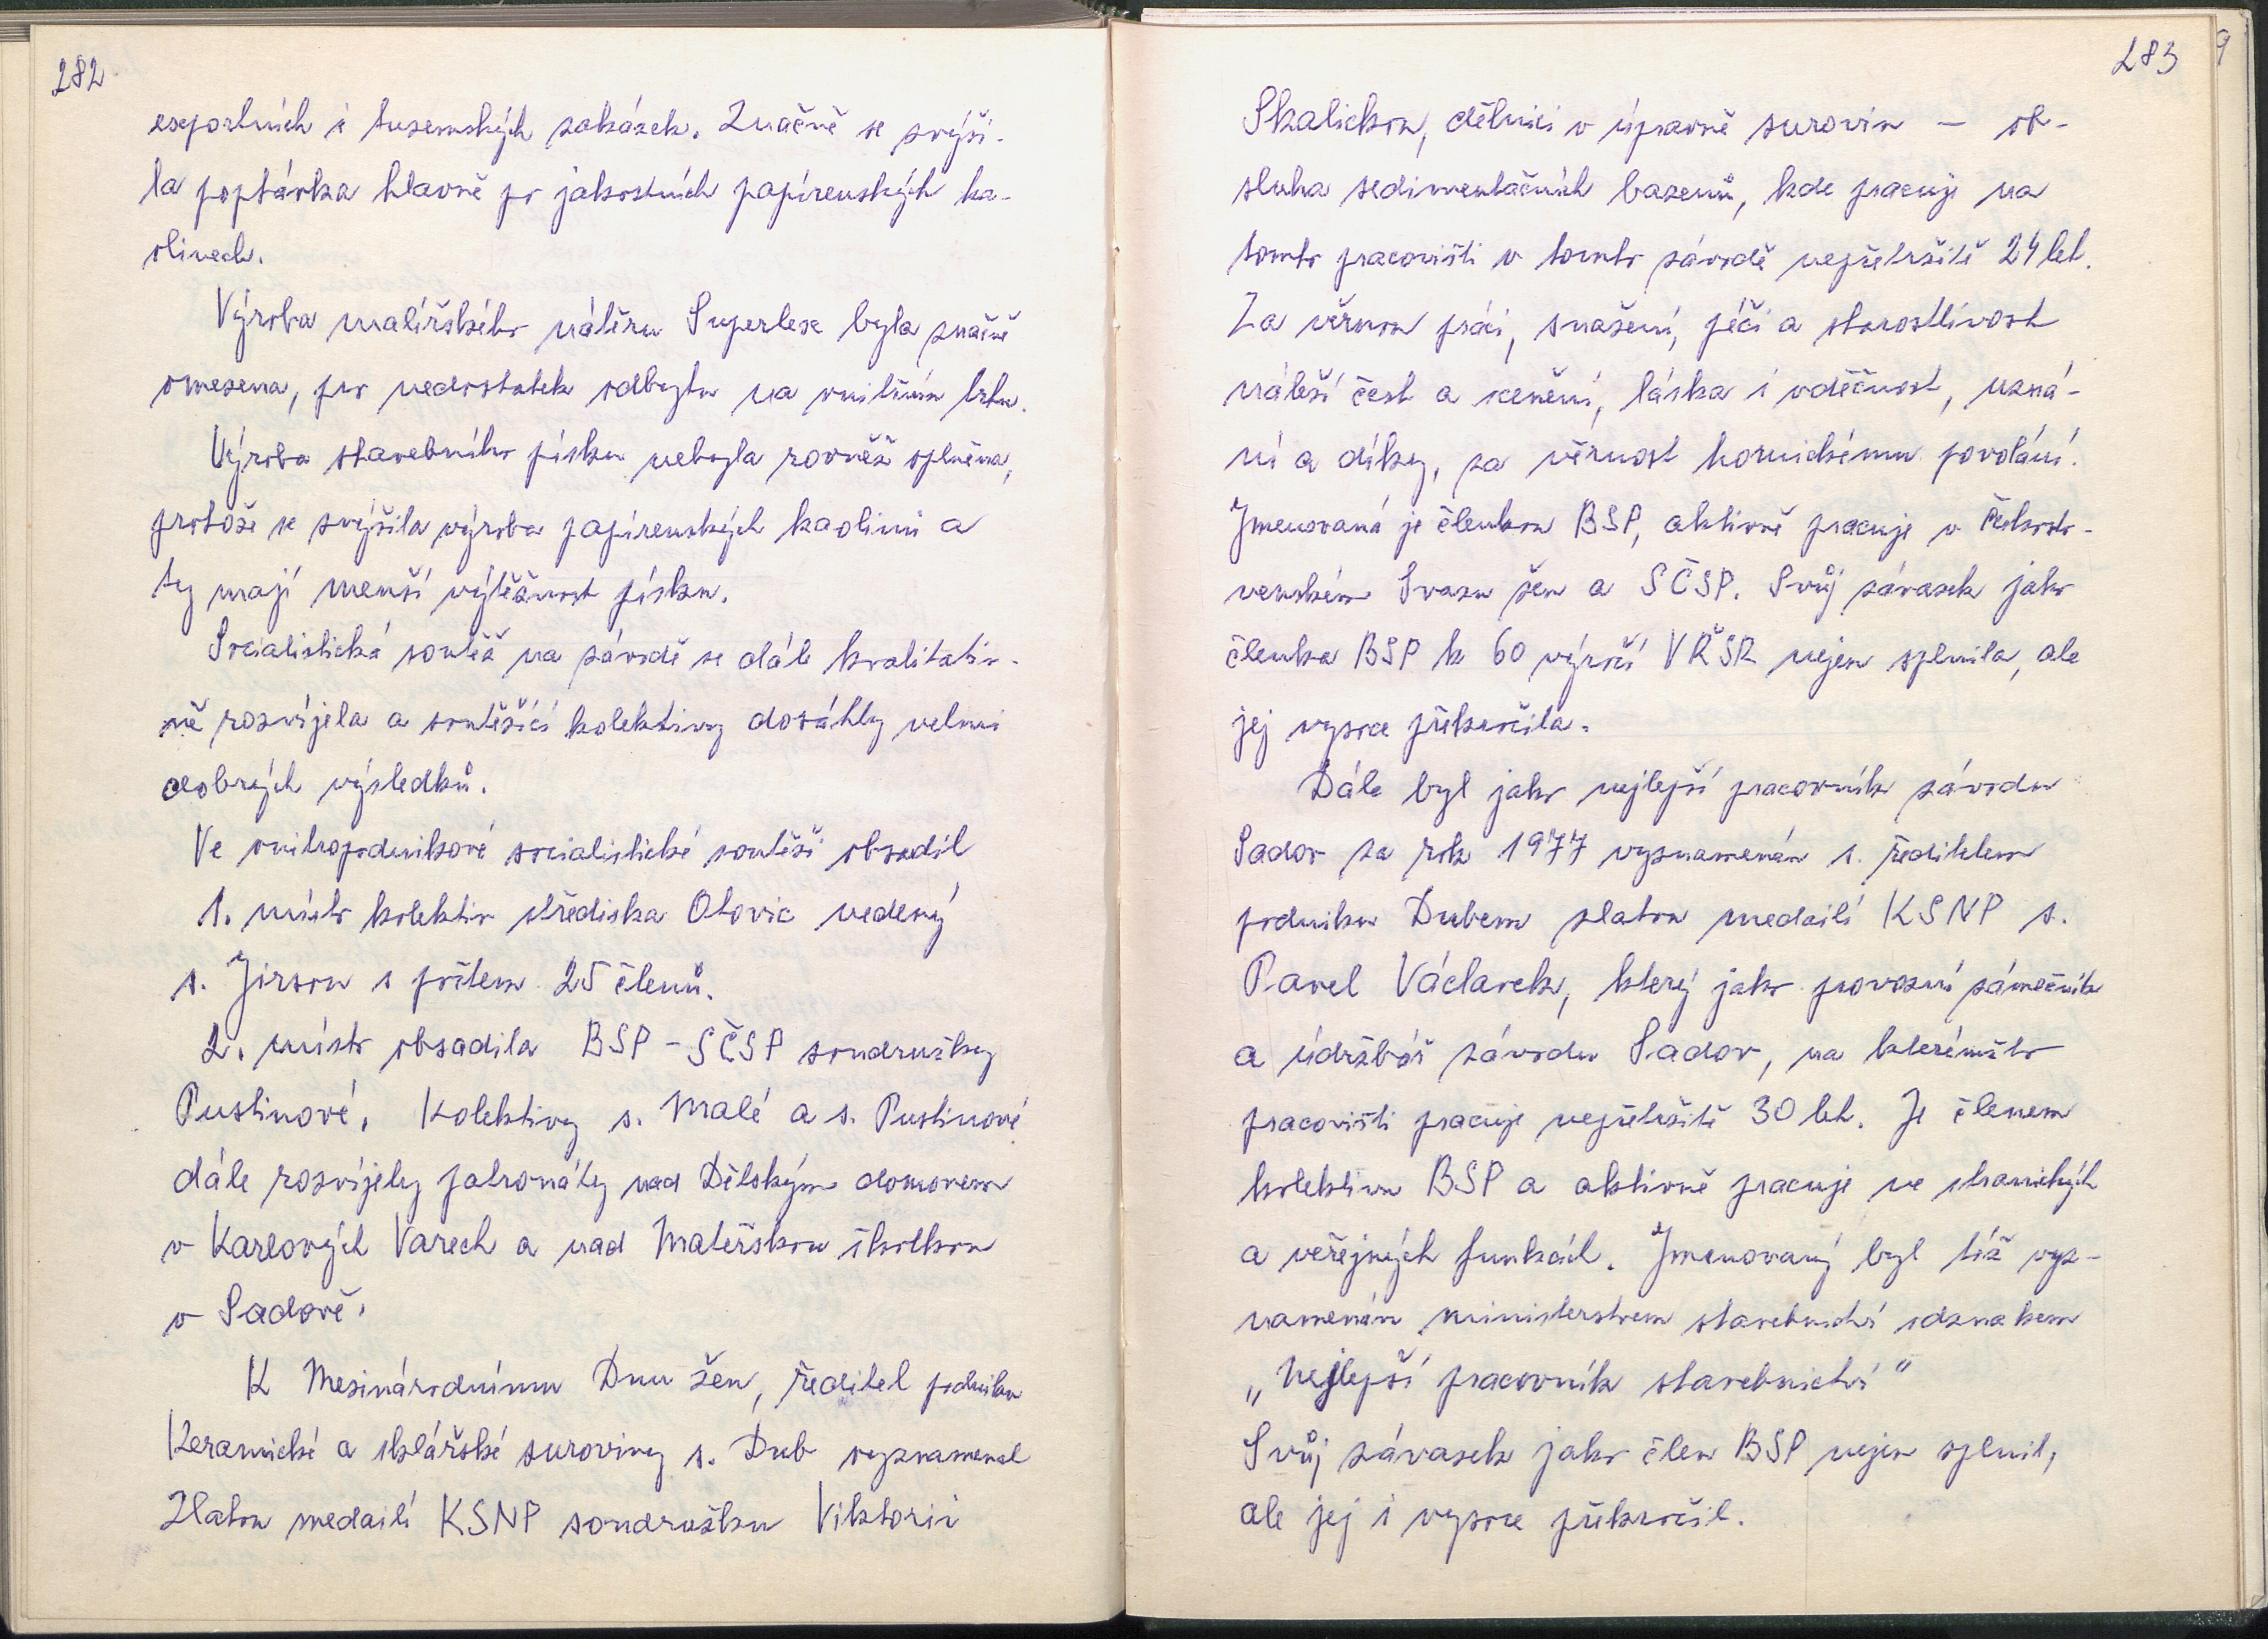 282
exportních i tuzemských zakázek. Značně se zvýši-
la poptávka hlavně po jakostních papírenských ka-
olinech.
Výroba malířského nátěru Superlex byla značně
omezena, pro nedostatek odbytu na vnitřním trhu.
Výroba stavebního písku nebyla rovněž splněna,
protože se zvýšila výroba papírenských kaolinů a
ty mají menší výtěžnost písku.
Socialistická soutěž na závodě se dále kvalitativ-
ně rozvíjela a soutěžící kolektivy dosáhly velmi
dobrých výsledků.
Ve vnitropodnikové socialistické soutěži obsadil
1. místo kolektiv střediska Otovic vedený
s. Jirsou s počtem 25 členů.
2. místo obsadila BSP - SČSP soudružky
Pustinové. Kolektivy s. Malé a s. Pustinové
dále rozvíjely patronáty nad Dětským domovem
v Karlových Varech a nad Mateřskou školkou
v Sadově.
K Mezinárodnímu Dnu žen, ředitel podniku
Keramické a sklářské suroviny s. Dub vyznamenal
Zlatou medailí KSNP soudružku Viktorii
283
Skalickou, dělnici v úpravně surovin – ob-
sluha sedimentačních bazenů, kde pracuje na
tomto pracovišti v tomto závodě nepřetržitě 24 let.
Za věrnou práci, snažení, péči a starostlivost
náleží čest a cenění, láska i vděčnost, uzná-
ní a díky, za věrnost hornickému povolání.
Jmenovaná je členkou BSP, aktivně pracuje v Českoslo-
venském Svazu žen a SČSP. Svůj závazek jako
členka BSP k 60 výročí VŘSR nejen splnila, ale
jej vysoce překročila.
Dále byl jako nejlepší pracovník závodu
Sadov za rok 1977 vyznamenán s. ředitelem
podniku Dubem zlatou medailí KSNP s.
Pavel Václavek, který jako provozní zámečník
a údržbář závodu Sadov, na kterémžto
pracovišti pracuje nepřetržitě 30 let. Je členem
kolektivu BSP a aktivně pracuje ve stranických
a veřejných funkcích. Jmenovaný byl též vyz-
namenán ministerstvem stavebnictví odznakem
„Nejlepší pracovník stavebnictví"
Svůj závazek jako člen BSP nejen splnil,
ale jej i vysoce překročil.